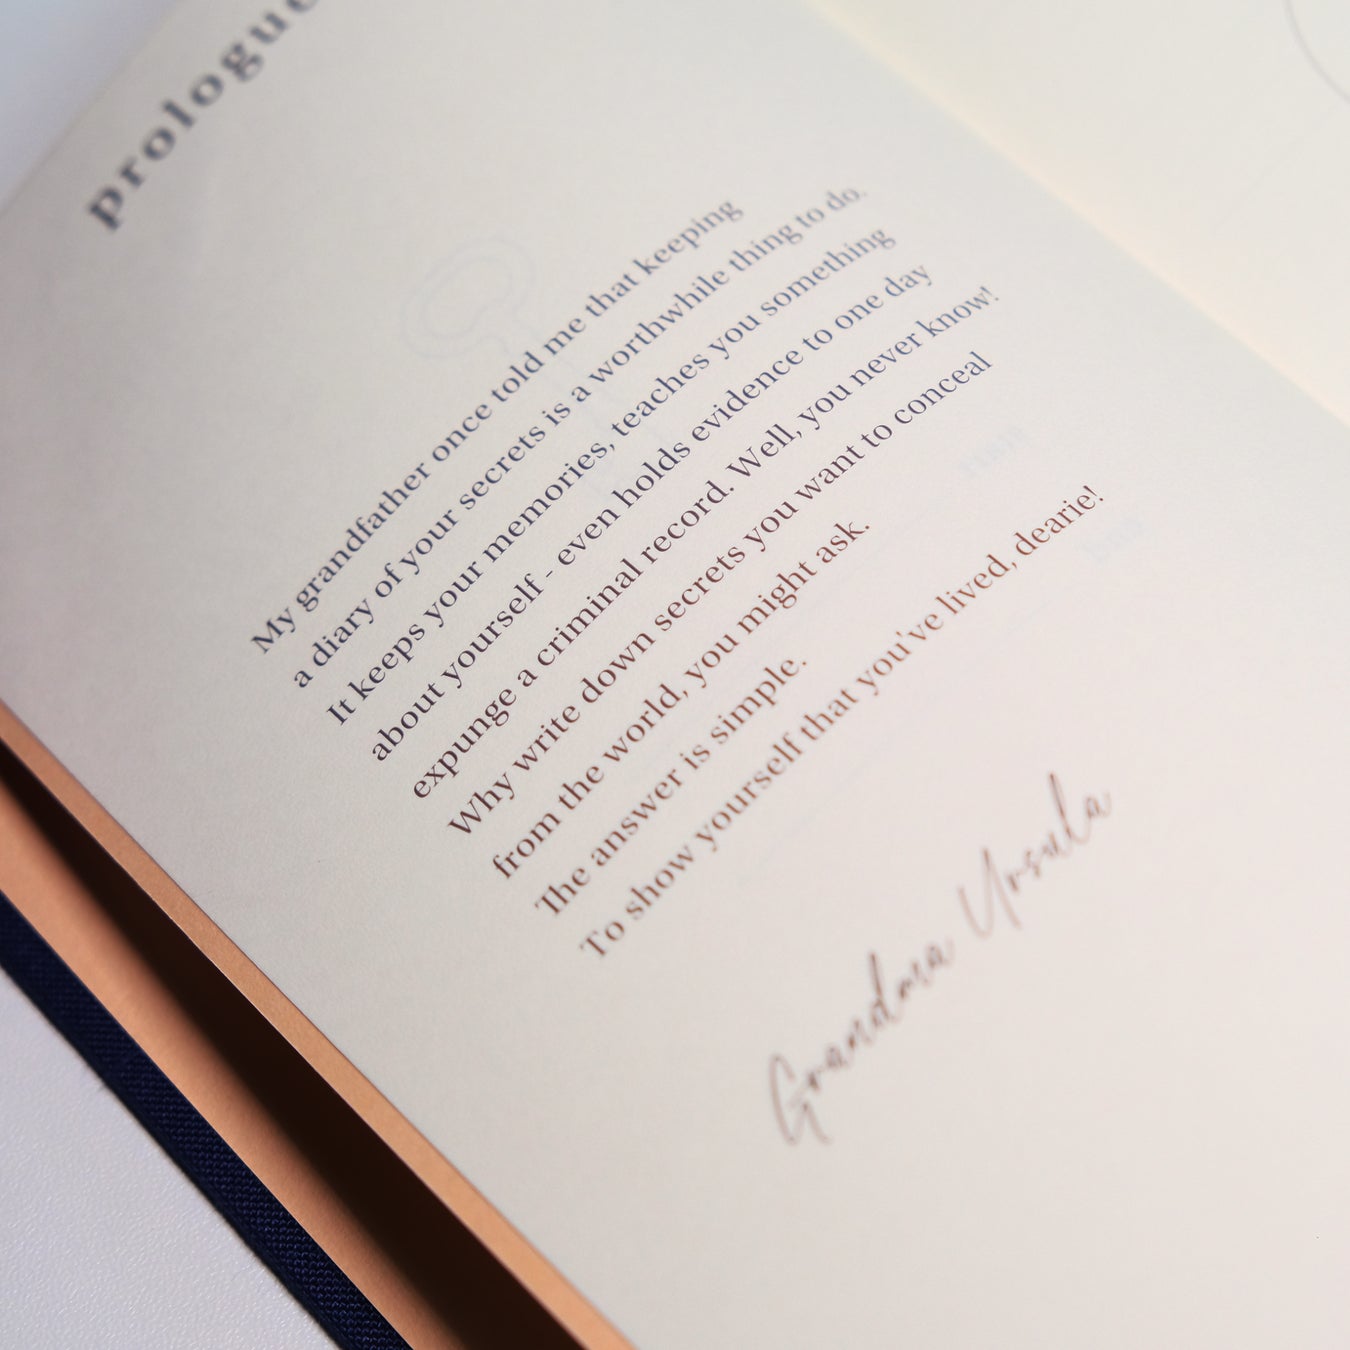 prologue
My grandfather once told me that keeping
a diary of your secrets is a worthwhile thing to do.
It keeps your memories, teaches you something
about yourself - even holds evidence to one day
expunge a criminal record. Well, you never know!
Why write down secrets you want to conceal
from the world, you might ask.
The answer is simple.
To show yourself that you've lived, dearie!
Grandma Ursula